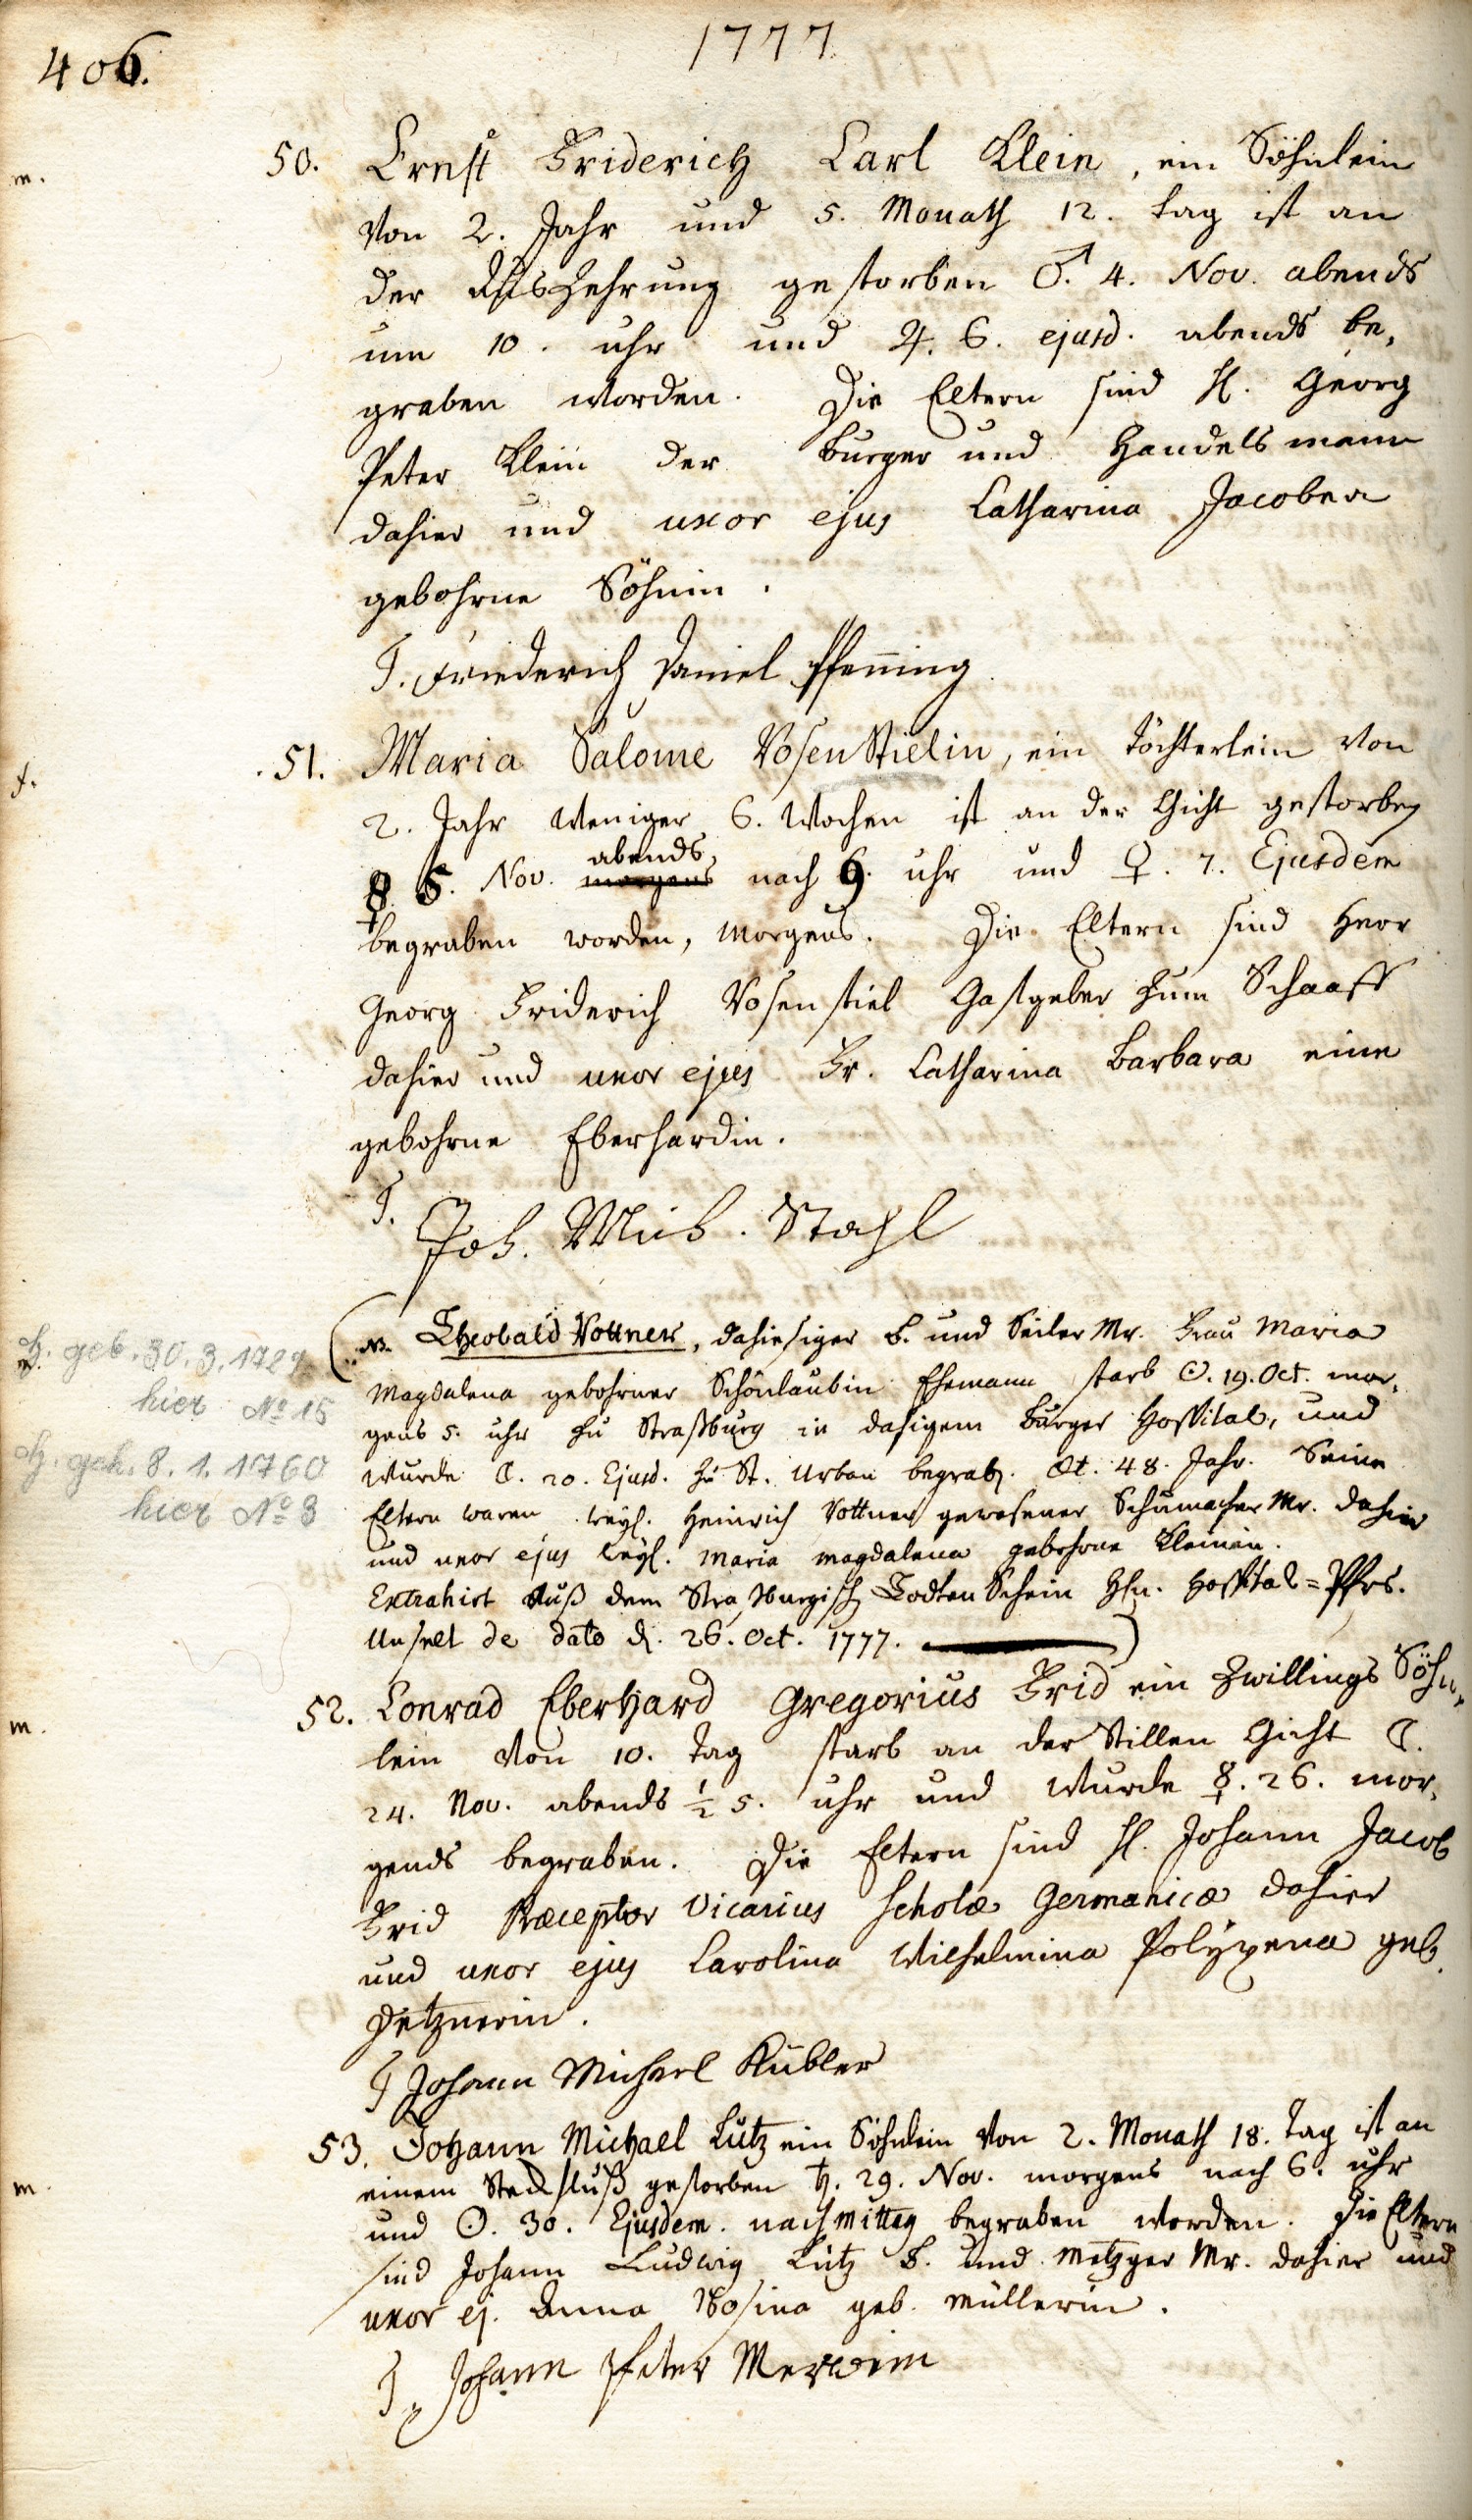 406.
1777.
m.
50. Ernst Friderich Carl Klein, ein Söhnlein
von 2. Jahr und 5. Monath 12. tag ist an
der Auszehrung gestorben ♂. 4. Nov. abends
um 10. uhr und ♃. 6. ejusd. abends be-
graben worden. Die Eltern sind H. Georg
Peter Klein der burger und Handelsmann
dahier und uxor ejus Catharina Jacobea
gebohrne Söhnin.
T. Friederich Daniel Pfenning
f.
51. Maria Salome Rosenstielin, ein Töchterlein von
2. Jahr weniger 6. Wochen ist an der Gicht gestorben
abends
☿ 5. Nov. morgens nach 9. uhr und ♀. 7. Ejusdem
begraben worden, morgens. Die Eltern sind Herr
Georg Friderich Rosenstiel Gastgeber zum Schaaff
dahier und uxor ejus Fr. Catharina Barbara eine
gebohrne Eberhardin.
T.
Joh. Mich. Stahl
m.
H. geb. 30.3.1729
hier No 15
H. geh. 8.1.1760
hier No 3
(NB. Theobald Rottner, dahiesiger b. und Seiler Mr. Frau Maria
Magdalena gebohrner Schönlaubin Ehemann starb ☉. 19. Oct. mor-
gens 5. uhr zu Straßburg in dasigem Burger Hospital, und
wurde ☾. 20. Ejusd. zu St. Urban begrab. Æt. 48. Jahr. Seine
Eltern waren weyl. Heinrich Rottner gewesener Schumacher Mr. dahier
und uxor ejus weyl. Maria Magdalena gebohrne Kleinin.
Extrahirt auß dem Straßburgisch Todten Schein Hn. Hospital=Pfrs.
Unselt de dato d. 26. Oct. 1777.)
m.
52. Conrad Eberhard Gregorius Frid ein Zwillings Söhn-
lein von 10. Tag starb an der Stillen Gicht ☾.
24. Nov. abends ½ 5. uhr und wurde ☿. 26. mor-
gends begraben. Die Eltern sind H. Johann Jacob
Frid Præceptor Vicarius Scholæ Germanicæ dahier
und uxor ejus Carolina Wilhelmina Polyxena geb.
Detznerin.
T Johann Michael Kübler
m.
53. Johann Michael Lutz ein Söhnlein von 2. Monath 18. Tag ist an
einem Steckfluß gestorben ♄. 29. Nov. morgens nach 6. uhr
und ☉. 30. Ejusdem. nachmittag begraben worden. Die Eltern
sind Johann Ludwig Lutz b. und Metzger Mr. dahier und
uxor ej. Anna Rosina geb. Müllerin.
T. Johann Peter